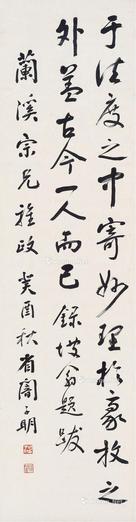 于法度之中寄妙理於豪放之
外蓋古今一人而已 錄坡翁題跋
蘭溪宗兄雅政 癸酉秋 子明